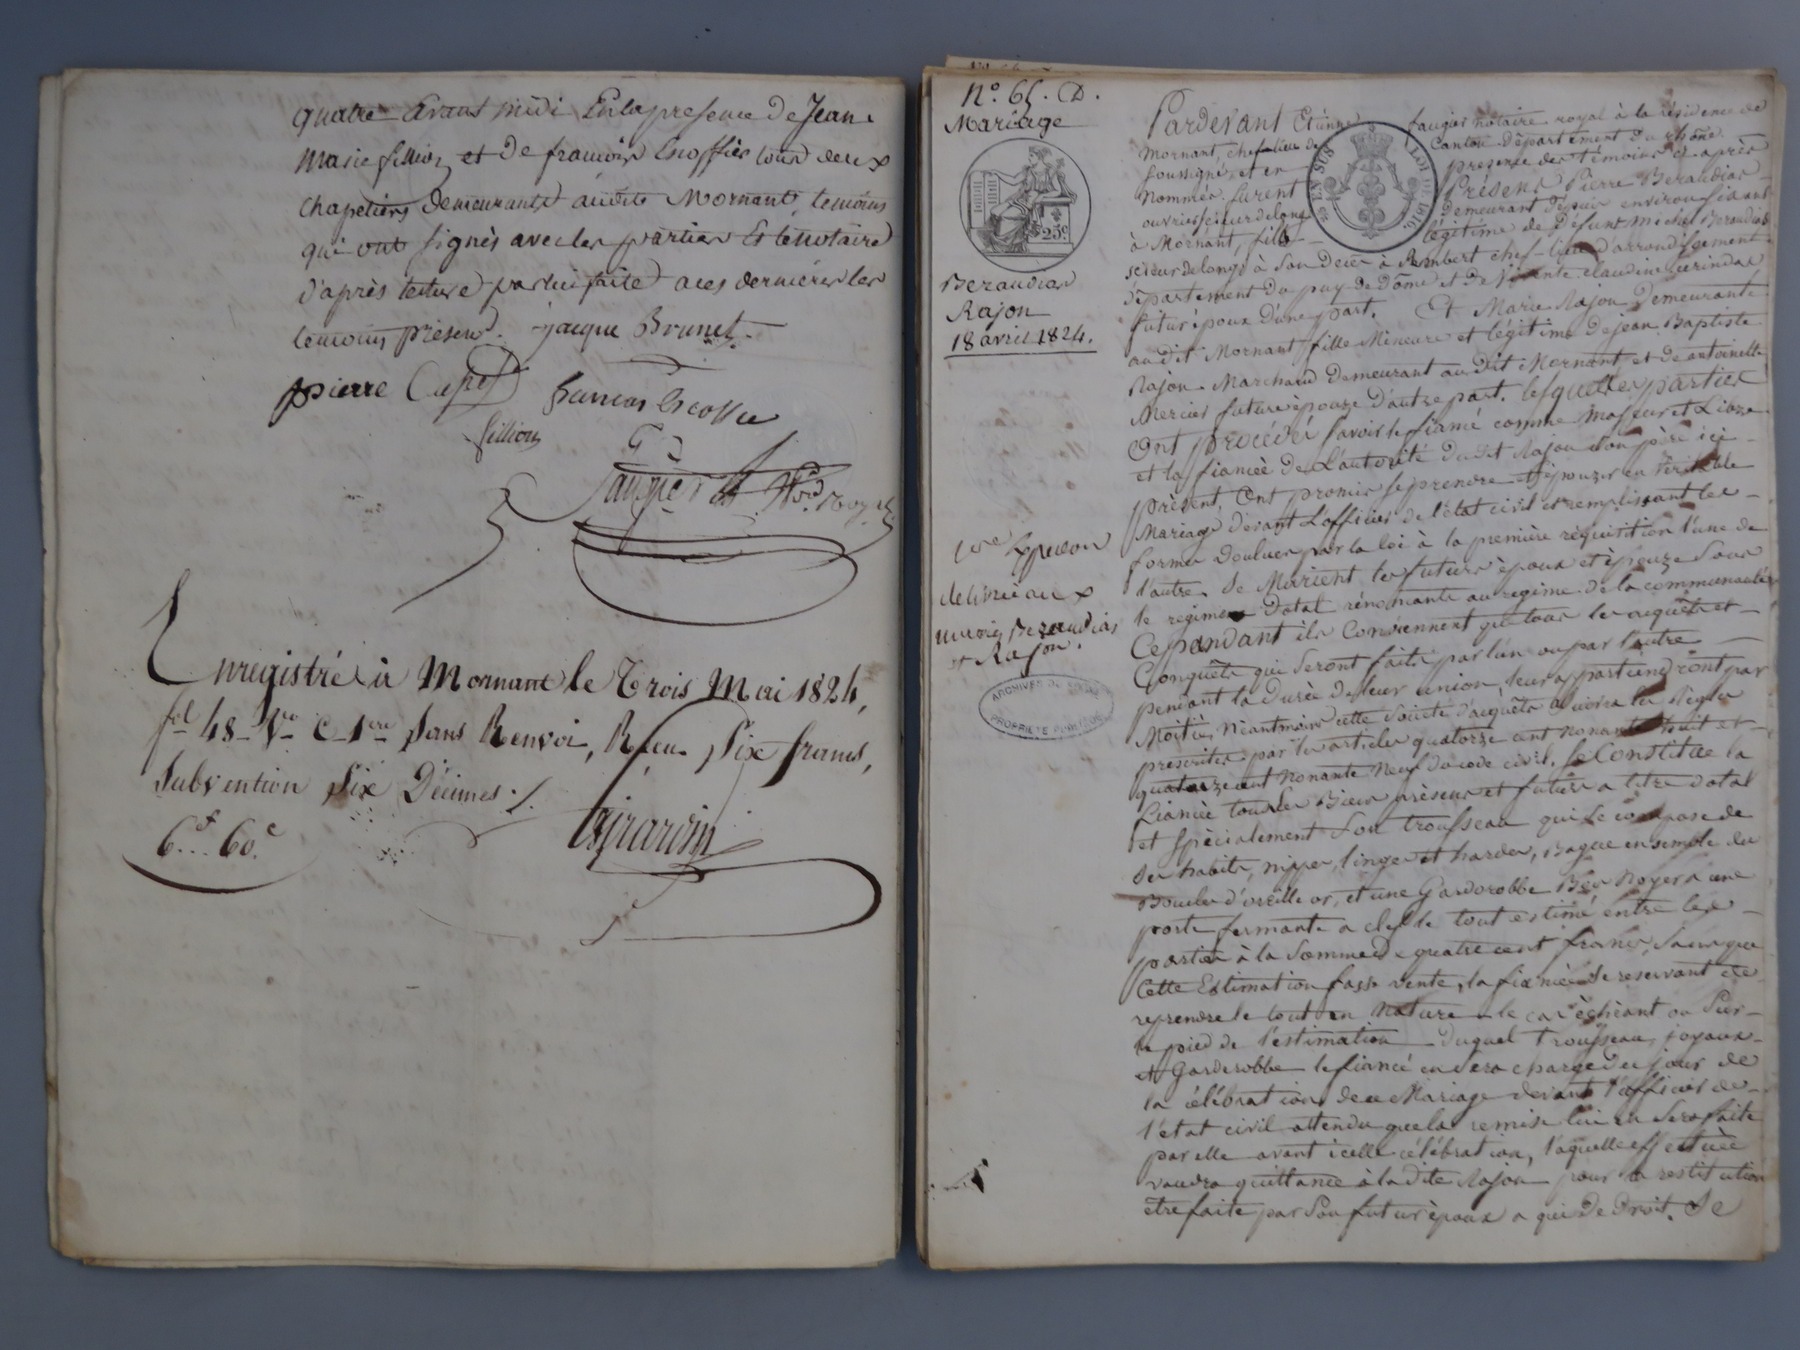 quatre avant midi En la presence de Jean
marie fillion et de françois Escoffier tous deux
chapeliers demeurants audit Mornant, temoins
qui ont signés avec les parties Et le notaire
d'après lecture par lui faite aces dernieres les
temoins présens. jacque Brunet
pierre
fillion
Enregistré à Mornant le Trois Mai 1824,
fol 48 Vo C 1ere Sans Renvoi, Reçu Six francs,
Subvention Six Décimes
6f... 60c
Girardin
No. 65. D.
Mariage
25c
Beraudias
Rajon
18 avril 1824.
1ere Expedon
delivrée aux
mariés Beraudias
et Rajon.
ARCHIVES DU RHÔNE
PROPRIÉTÉ PUBLIQUE
EN SUS LOI DE 1816
Pardevant Etienne faugier notaire royal à la résidence de
Mornant, chef-lieu de Canton Département du rhône
soussigné, et en présence des témoins ci après
Nommés. furent Présens Pierre Beraudias
ouvrier scieur de long Demeurant depuis environ six ans
à Mornant, fils légitime de Défunt Michel Beraudias
scieur de long à son Decès à Ambert chef-lieu d'arrondissement
Département du puy-de-Dôme et de Vivante claudine
futur époux d'une part. Et Marie Rajon Demeurante
au dit Mornant fille Mineure et légitime de jean Baptiste
Rajon Marchand Demeurant au dit Mornant et de antoinette
Mercier future épouze d'autre part. lesquelles parties
Ont procédé savoir le fiancé comme Majeur et Libre
et la fiancée de L'autorité du dit Rajon son père ici
présent. Ont promis se prendre et épouzer en véritable
Mariage devant L'officier de l'état civil et remplissant les
formes voulues par la loi à la première réquisition l'une de
l'autre. Se Marient les futurs époux et épouze Sous
le régime Dotal rénonçants au régime de la communauté
Cependant ils Conviennent que tous les acquêts et
Conquêts qui Seront faits par l'un ou par l'autre
pendant la durée de leur union, leur appartiendront par
Moitié, Néantmoins cette Société d'acquêts Suivra les Règles
prescrites par les articles quatorze cent nonante huit et
quatorze cent nonante Neuf du code civil. Se Constitue la
fiancée tous les Biens présens et futurs a titre dotal
et spécialement Son trousseau qui Se compose de
Ses habits, nippes, linges et hardes, Bague ensemble des
Boucles d'oreille or, et une Garderobbe Bois Noyer a une
porte fermante a clef le tout estimé entre les
parties à la Somme de quatre cent francs, sans que
Cette Estimation fasse vente, la fiancée Se reservant de
reprendre le tout en Nature le cas échéant ou Sur
le pied de l'estimation Duquel trousseau, joyaux
et Garderobbe le fiancé en Sera chargé du jour de
la célébration du Mariage devant l'officier de
l'état civil attendu que la remise lui en Sera faite
par elle avant icelle célébration, laquelle effectuée
vaudra quittance à la dite Rajon pour la restitution
être faite par Son futur époux a qui De Droit. Se